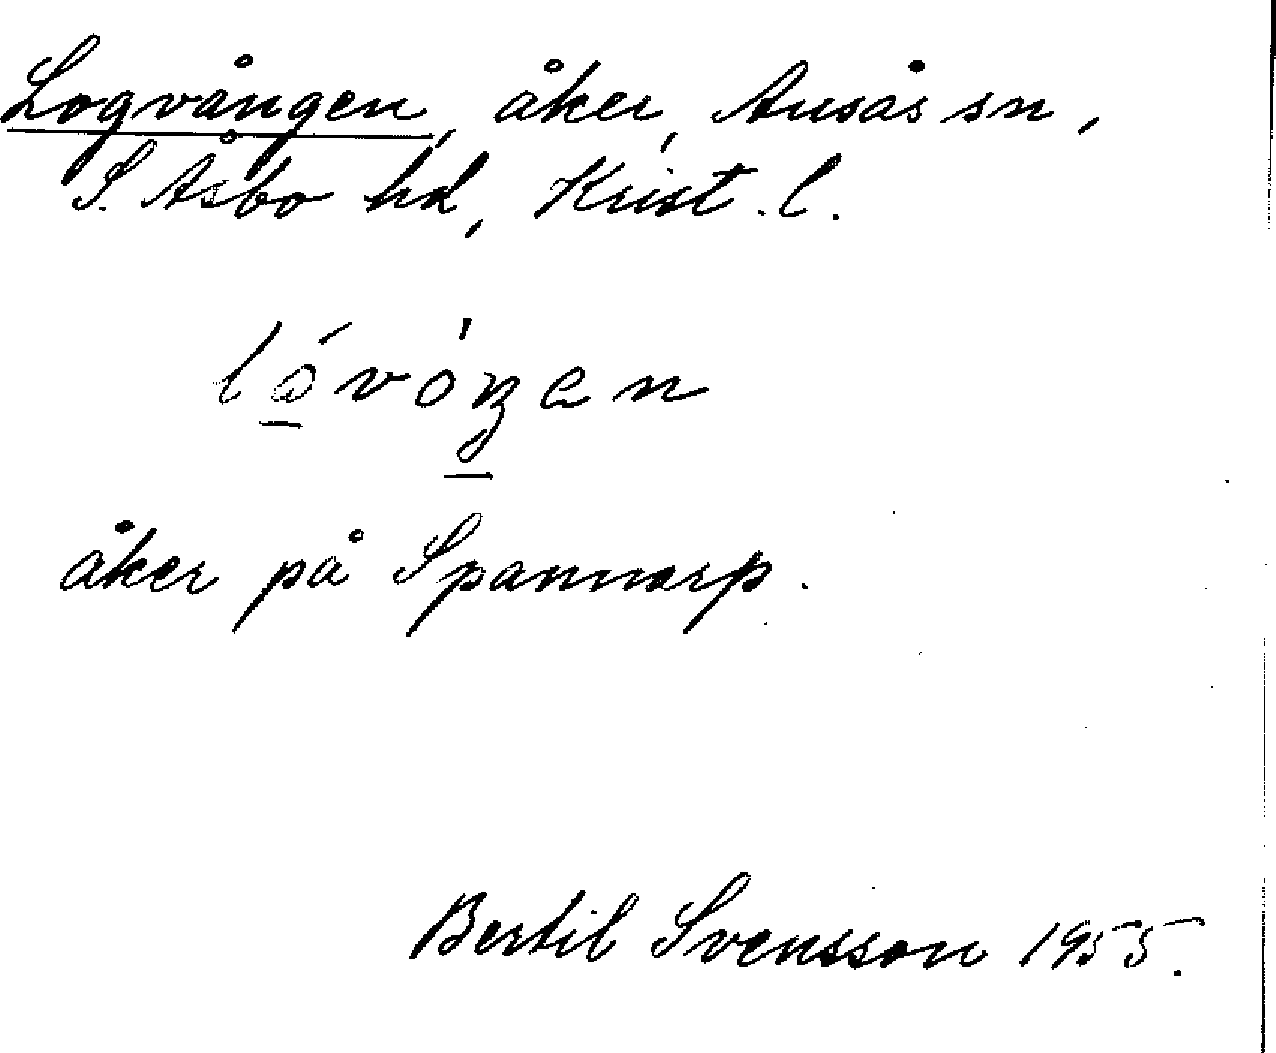 Logvången, åker, Ausås sn,
S. Åsbo hd, Krist. l.
åker på Spannarp.
Bertil Svensson 1955.